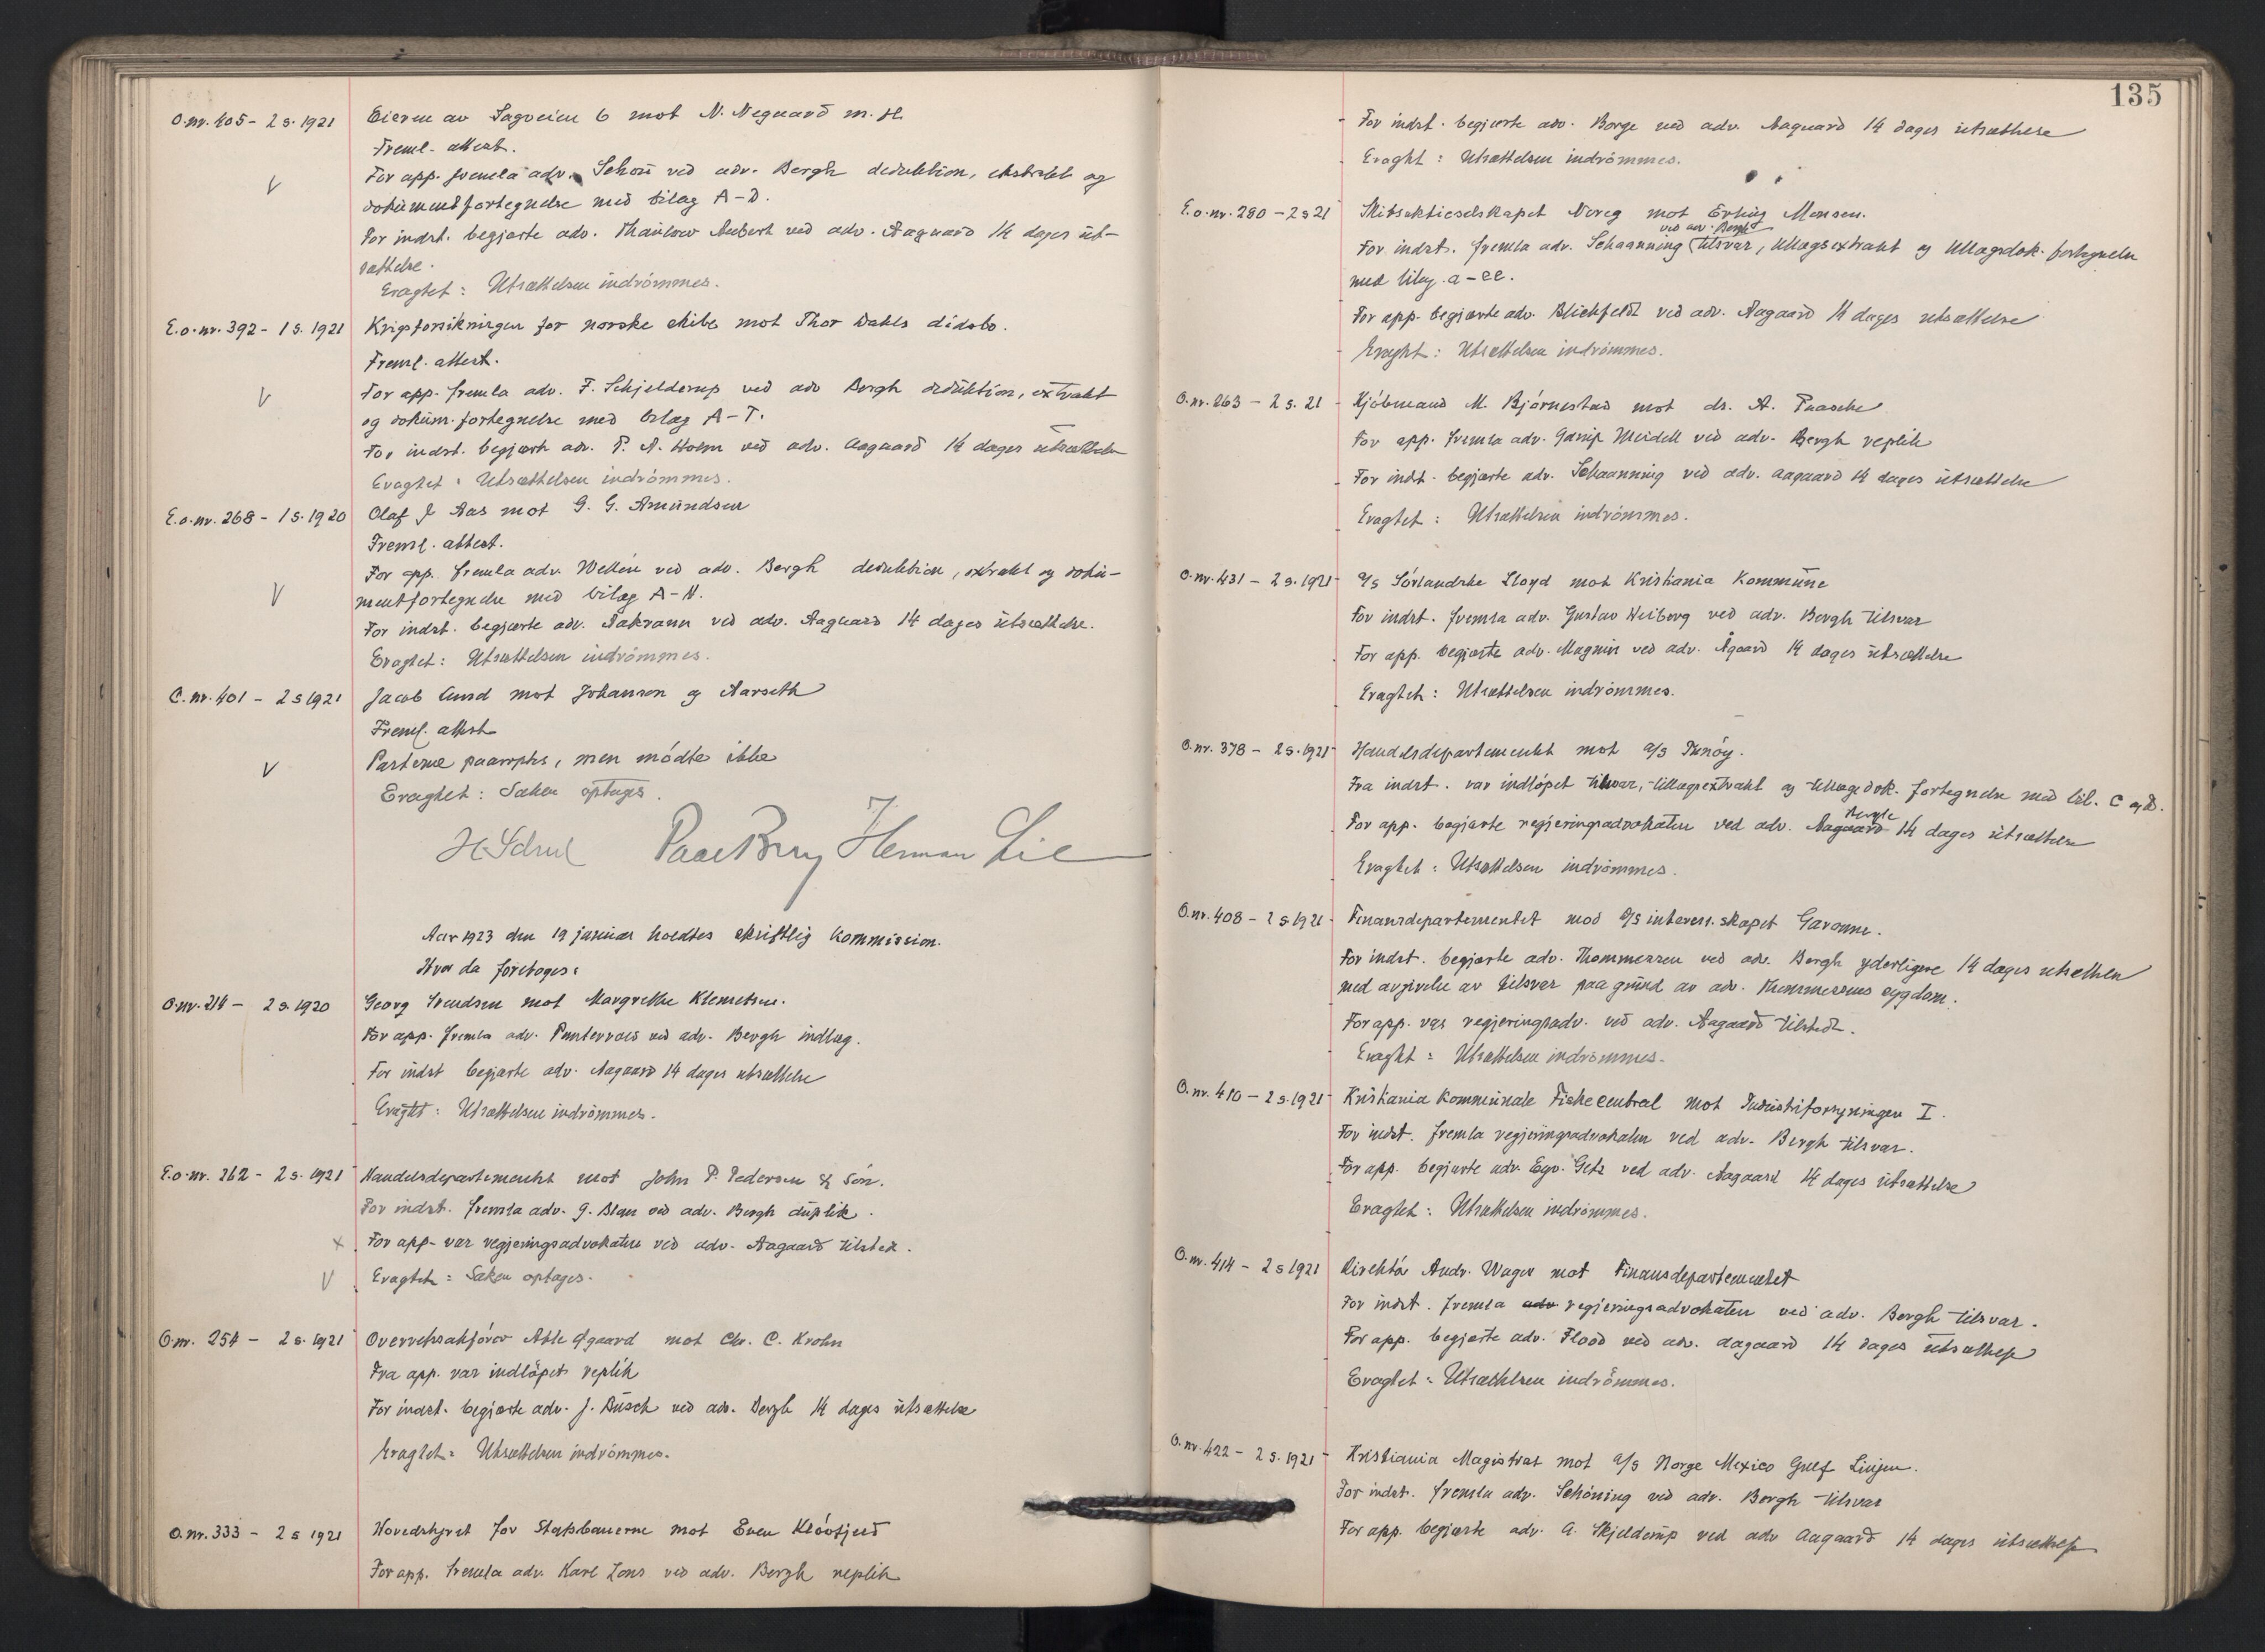 O.nr. 405 - 2 s. 1921 Eieren av Sagveien 6 mot N. Negaard m. fl.
Freml. attest.
V For app. fremla adv. Schou ved adv. Bergh deduktion, ekstrakt og
dokumentfortegnelse med bilag A-D.
For indst. begjærte adv. Thaulow Aubert ved adv. Aagaard 14 dages ut-
sættelse.
Eragtet: Utsættelsen indrömmes.
E.o.nr. 392 - 1 s. 1921 Krigsforsikringen for norske skibe mot Thor Dahls dödsbo.
Freml. attest.
V For app. fremla adv. F. Schjelderup ved adv Bergh deduktion, extrakt
og dokum. fortegnelse med bilag A-T.
For indst. begjærte adv. P. A. Holm ved adv. Aagaard 14 dages utsættelse
Eragtet: Utsættelsen indrömmes.
E.o.nr. 268 - 1 s. 1920 Olaf J Aas mot G. G. Amundsen
Freml. attest.
For app. fremla adv. ved adv. Bergh deduktion, extrakt og doku-
V mentfortegnelse med bilag A-N.
For indst. begjærte adv. ved adv. Aagaard 14 dages utsættelse.
Eragtet: Utsættelsen indrömmes.
O.nr. 401 - 2 s 1921 Jacob mot Johansen og Aarseth
Freml. attest
V Parterne paaroptes, men mödte ikke
Eragtet: Saken optages.
Paal Berg Herman Lie
Aar 1923 den 19 januar holdtes skriftlig kommission.
Hvor da foretoges:
O.nr. 214 - 2 s. 1920 Georg Svendsen mot Margrethe Klemetsen.
For app. fremla adv. Puntervold ved adv. Bergh indlæg.
For indst begjærte adv. Aagaard 14 dages utsættelse
Eragtet: Utsættelsen indrömmes.
E.o.nr. 262 - 2 s. 1921 Handelsdepartementet mot John P. Pedersen & Sön.
For indst. fremla adv. G. ved adv. Bergh duplik.
x For app. var regjeringsadvokaten ved adv. Aagaard tilstede.
V Eragtet: Saken optages.
O.nr. 254 - 2 s. 1921 Overretssakförer Atle mot Chr. C. Krohn
Fra app. var indlöpet replik
For indst. begjærte adv. J. Busch ved adv. Bergh 14 dages utsættelse
Eragtet: Utsættelsen indrömmes.
O.nr. 333 - 2 s 1921 Hovedstyret for Statsbanerne mot Even Klöofjeld
For app. fremla adv. Karl Lous ved adv. Bergh replik
135
For indst. begjærte adv. Borge ved adv. Aagaard 14 dages utsættelse
Eragtet: Utsættelsen indrömmes.
E.o.nr. 280 - 2 s 21 Skibsaktieselskapet Noreg mot Erling Monsen.
ved adv. Bergh
For indst. fremla adv. Schaanning tilsvar, tillægsextrakt og tillægsdok. fortegnelse
med bilag a-ee.
For app. begjærte adv. Blichfeldt ved adv. Aagaard 14 dages utsættelse
Eragtet: Utsættelsen indrömmes.
O.nr. 263 - 2 s. 21 Kjöbmand M. Björnestad mot dr. A. Paasche
For app. fremla adv. Gasup Meidell ved adv. Bergh replik
For indst. begjærte adv. Schaanning ved adv. Aagaard 14 dages utsættelse
Eragtet: Utsættelsen indrömmes.
O.nr. 431 - 2 s. 1921 A/s Sörlandske Lloyd mot Kristiania Kommune
For indst. fremla adv. Gustav Heiberg ved adv. Bergh tilsvar
For app. begjærte adv. Magnus ved adv. Ågaard 14 dages utsættelse
Eragtet: Utsættelsen indrömmes.
O.nr. 378 - 2 s. 1921 Handelsdepartementet mot a/s Tunöy.
Fra indst. var indlöpet tilsvar, tillægsextrakt og tillægsdok. fortegnelse med bil. C og D.
Bergh
For app. begjærte regjeringsadvokaten ved adv. Aagaard 14 dages utsættelse
Eragtet: Utsættelsen indrömmes.
O.nr. 408 - 2 s 1921 Finansdepartementet mod a/s interess. skapet Garonne.
For indst. begjærte adv. Thommessen ved adv. Bergh yderligere 14 dages utsættelse
med avgivelse av tilsvar paa grund av adv. Thommessens sygdom.
For app. var regjeringsadv. ved adv. Aagaard tilstede.
Eragtet: Utsættelsen indrömmes.
O.nr. 410 - 2 s. 1921 Kristiania Kommunale Fiskecentral mot Industriforsyningen I.
For indst. fremla regjeringsadvokaten ved adv. Bergh tilsvar.
For app. begjærte adv. Eyv. Getz ved adv. Aagaard 14 dages utsættelse
Eragtet: Utsættelsen indrömmes.
O.nr. 414 - 2 s 1921 Direktör Andr. Wager mot Finansdepartementet
For indst. fremla adv regjeringsadvokaten ved adv. Bergh tilsvar.
For app. begjærte adv. Flood ved adv. Aagaard 14 dages utsættelse
Eragtet: Utsættelsen indrömmes.
O.nr. 422 - 2 s. 1921 Kristiania Magistrat mot a/s Norge Mexico Gulf Linjen.
For indst. fremla adv. Schöning ved adv. Bergh tilsvar
For app. begjærte adv. A. Skjelderup ved adv Aagaard 14 dages utsættelse